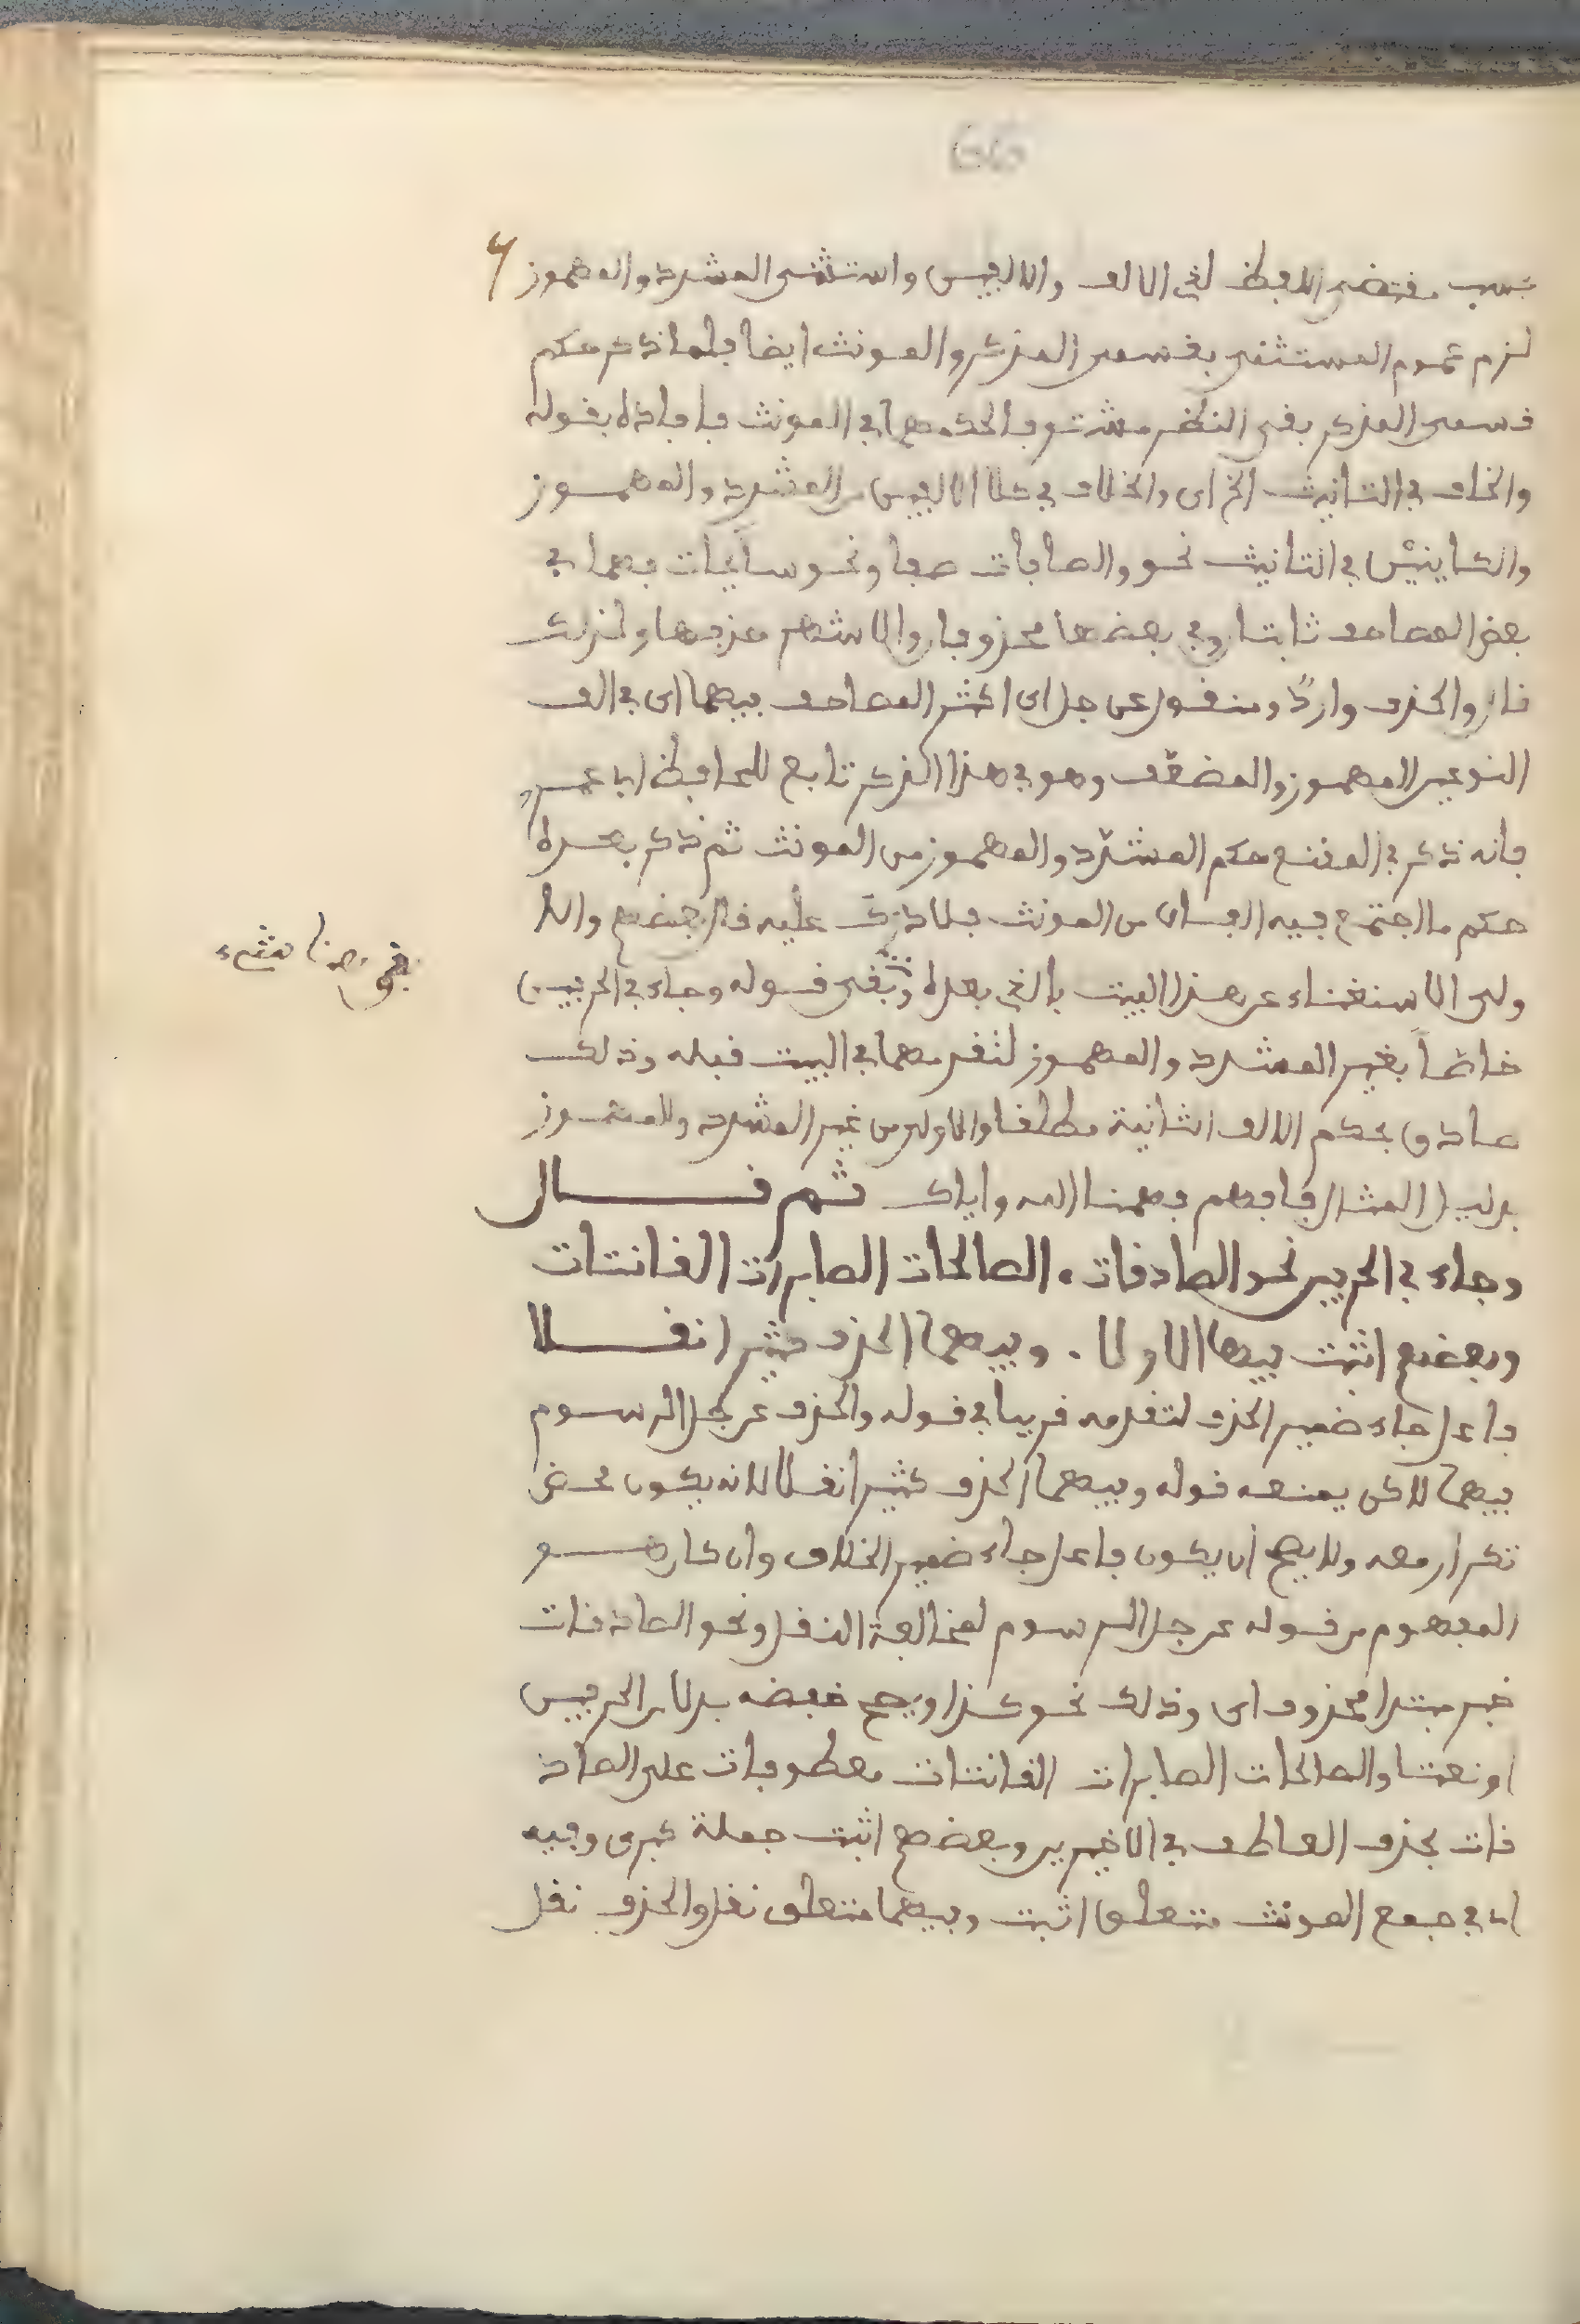 بحسب مقتضى اللفظ لذي الالف والالفين واستثنى المشدد والمهموز
لزم عموم المستثنى بقسمي المذكر والمونث ايضا فلما ذكر حكم
قسمي المذكر بقى النظر متشوفا لحكمهما في المونث فافاده بقوله
والخلف في التانيث الخ اي والخلاف في كلا الالفين من المشدد والمهموز
والكاينين في التانيث نحو والصافات صفا ونحو سائحات فهما في
بعض المصاحف ثابتا وفي بعضها محذوفا والاشهر حذفها ولذلك
قال والحذف وارد ومنقول عن جل اي اكثر المصاحف فيهما اي في الف
النوعين المهموز والمضعف وهو في هذا الذكر تابع للحافظ ابا عمرو
فانه ذكر في المقنع حكم المشدد والمهموز من المونث ثم ذكر بعده
حكم ما اجتمع فيه الفان من المونث فلا درك عليه
ولى الاستغناء عن هذا البيت بالذي بعده وبقى قوله وجاء في الحرفين
خاصا بغير المشدد والمهموز لتقدمهما في البيت قبله وذلك
صادق بحكم الالف الثانية مطلقا والاولى من غير المشدد والمهموز
بدليل المثال فافهم فهمنا الله واياك ثم قال
وجاء في الحرفين نحو الصادقات . الصالحات الصابرات القانتات
وبعضهم اثبت فيها الاولا . وفيهما الحذف كثيرا نقلا
فاعل جاء ضمير الحذف لتقدمه قريبا في قوله والحذف عن جل الرسوم
فيهما لاكن يمنعه قوله وفيهما الحذف كثيرا نقلا لانه يكون محض
تكرار معه ولا يصح ان يكون فاعل جاء ضمير الخلاف وان كان هو
المفهوم من قوله عن جل الرسوم لمخالفة النقل ونحو الصادقات
خبر مبتدا محذوف اي وذلك نحو كذا ويصح خفضه بدلا من الحرفين
او نعتا والصالحات الصابرات القانتات معطوفات على الصاد
قات بحذف العاطف في الاخيرين وبعضهم اثبت جملة كبرى وفيه
اي في جمع المونث متعلق اثبت وفيهما متعلق نقل والحذف نقل
هنا شيء